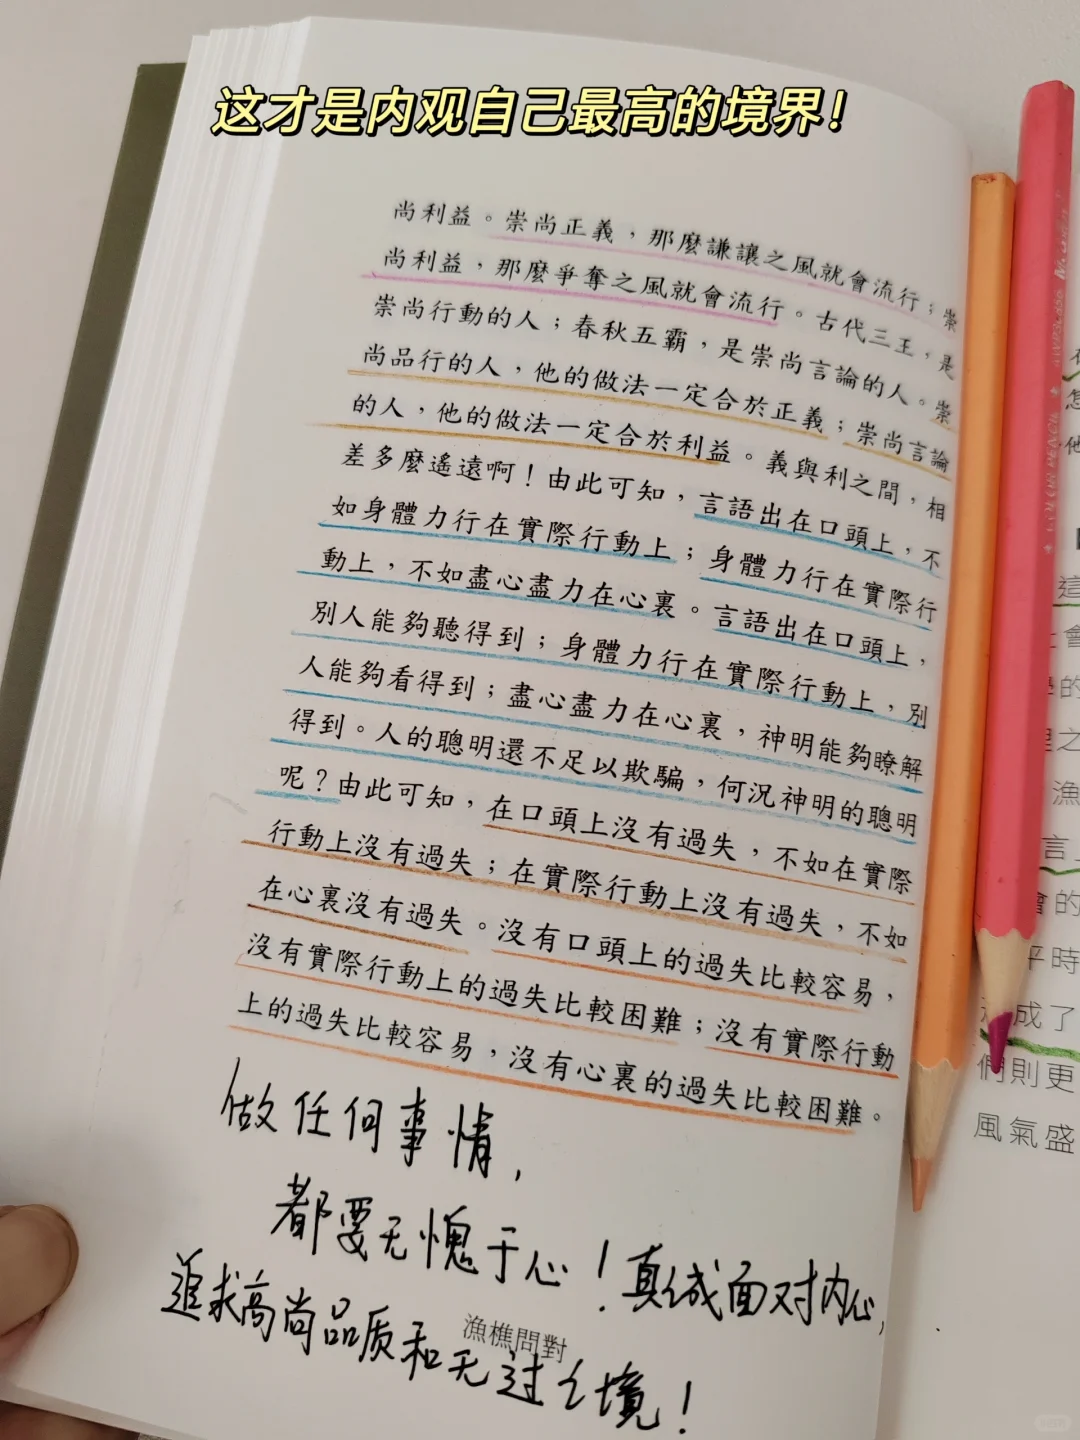 这才是内观自己最高的境界！
尚利益。崇尚正義，那麼謙讓之風就會流行；崇
尚利益，那麼爭奪之風就會流行。古代三王，是
崇尚行動的人；春秋五霸，是崇尚言論的人。崇
尚品行的人，他的做法一定合於正義；崇尚言論
的人，他的做法一定合於利益。義與利之間，相
差多麼遙遠啊！由此可知，言語出在口頭上，不
如身體力行在實際行動上；身體力行在實際行
動上，不如盡心盡力在心裏。言語出在口頭上，
別人能夠聽得到；身體力行在實際行動上，別
人能夠看得到；盡心盡力在心裏，神明能夠瞭解
得到。人的聰明還不足以欺騙，何況神明的聰明
呢？由此可知，在口頭上沒有過失，不如在實際
行動上沒有過失；在實際行動上沒有過失，不如
在心裏沒有過失。沒有口頭上的過失比較容易，
沒有實際行動上的過失比較困難；沒有實際行動
上的過失比較容易，沒有心裏的過失比較困難。
做任何事情，
都要无愧于心！真诚面对内心，
追求高尚品质和无过之境！
漁樵問對
這
會
學的
理之
漁
言
會的
平時
成了
們則更
風氣盛